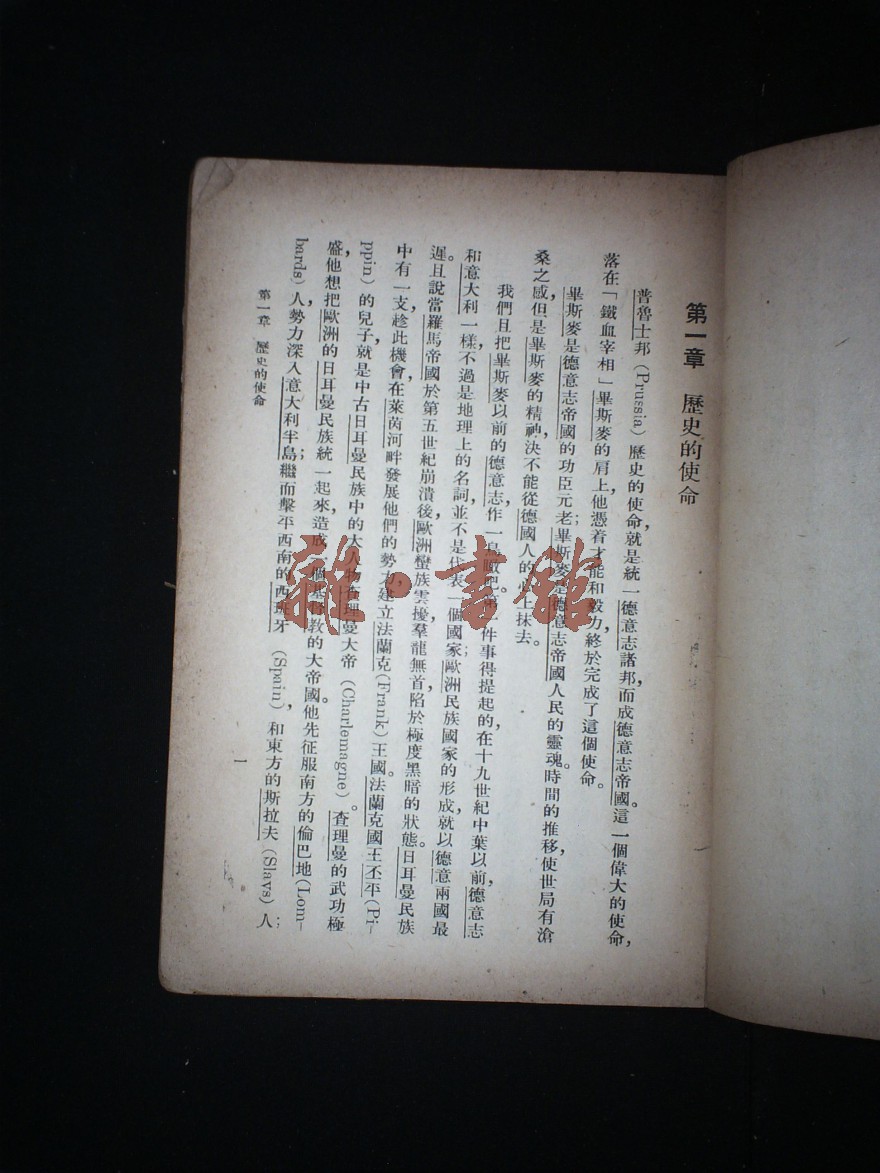 第一章　歷史的使命
普魯士邦（Prussia）歷史的使命，就是統一德意志諸邦，而成德意志帝國。這一個偉大的使命，
落在「鐵血宰相」畢斯麥的肩上，他憑着才能和毅力，終於完成了這個使命。
畢斯麥是德意志帝國的功臣元老；畢斯麥是德意志帝國人民的靈魂。時間的推移，使世局有滄
桑之感，但是畢斯麥的精神，決不能從德國人的心上抹去。
我們且把畢斯麥以前的德意志，作一鳥瞰吧。第一件事得提起的，在十九世紀中葉以前，德意志
和意大利一樣，不過是地理上的名詞，並不是代表一個國家；歐洲民族國家的形成，就以德意兩國最
遲。且說當羅馬帝國於第五世紀崩潰後，歐洲蠻族雲擾，羣龍無首，陷於極度黑暗的狀態。日耳曼民族
中有一支，趁此機會，在萊茵河畔發展他們的勢力，建立法蘭克（Frank）王國。法蘭克國王丕平（Pi-
ppin）的兒子，就是中古日耳曼民族中的大人物查理曼大帝（Charlemagne）。查理曼的武功極
盛，他想把歐洲的日耳曼民族統一起來，造成一個基督教的大帝國。他先征服南方的倫巴地（Lom-
bards）人，勢力深入意大利半島；繼而擊平西南的西班牙（Spain），和東方的斯拉夫（Slavs）人；
第一章　歷史的使命
一
雜·書館